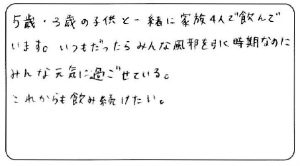 5歳・3歳の子供と一緒に家族4人で飲んで
います。いつもだったらみんな風邪を引く時期なのに
みんな元気に過ごせている。
これからも飲み続けたい。